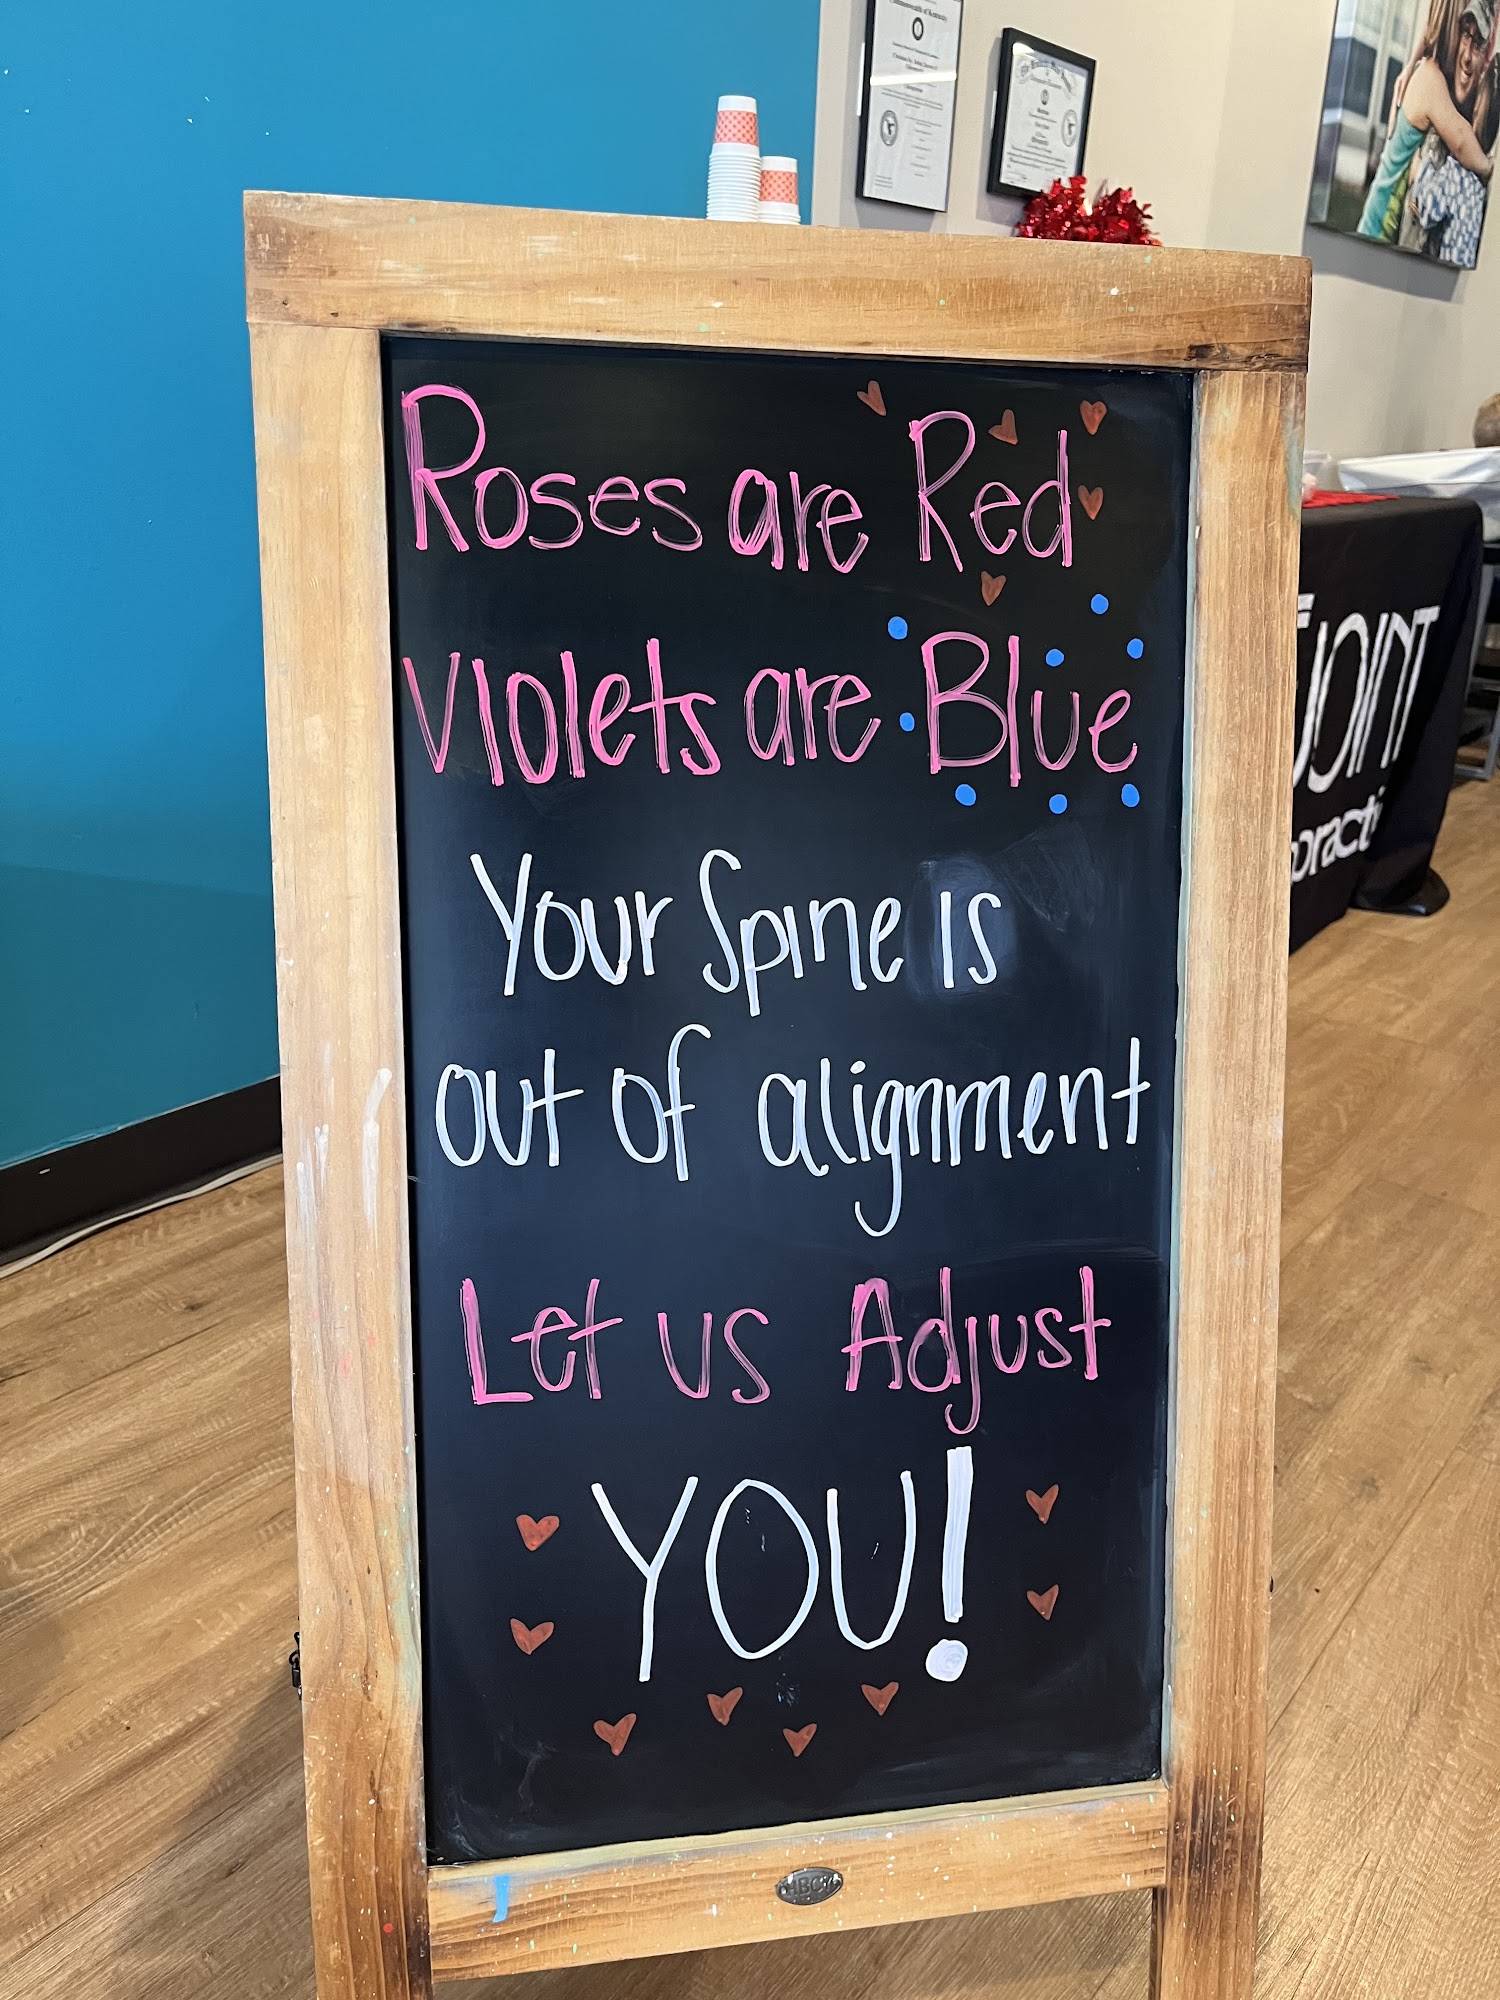 Commonwealth of Kentucky
Roses are Red
Violets are Blue
Your Spine is
out of alignment
Let us Adjust
YOU!
JOINT